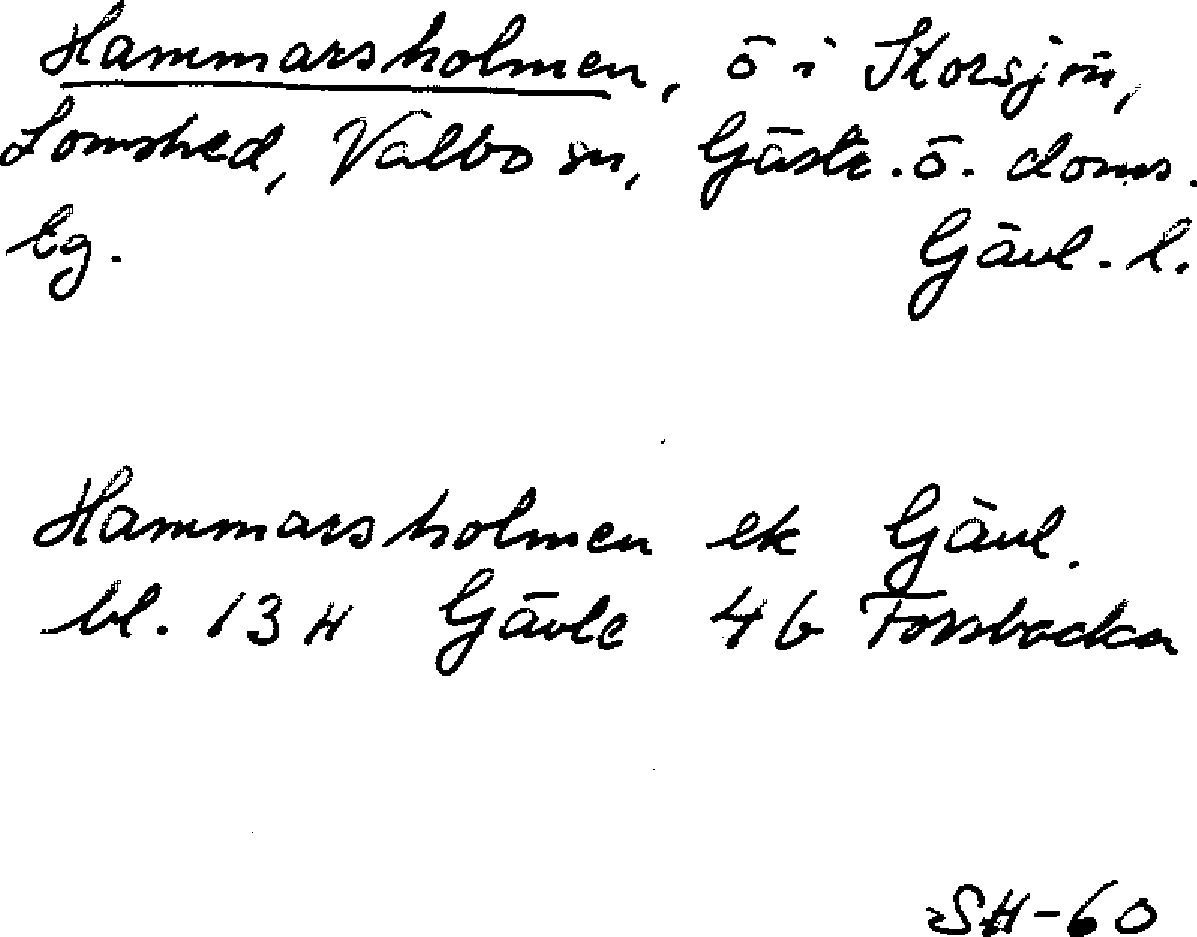 Hammarsholmen, ö i Storsjön,
Lomshed, Valbo sn, Gästr. ö. doms.
Eg. Gävl. l.
Hammarsholmen ek Gävl.
bl. 13 H Gävle 4 b Forsbacka
SH-60